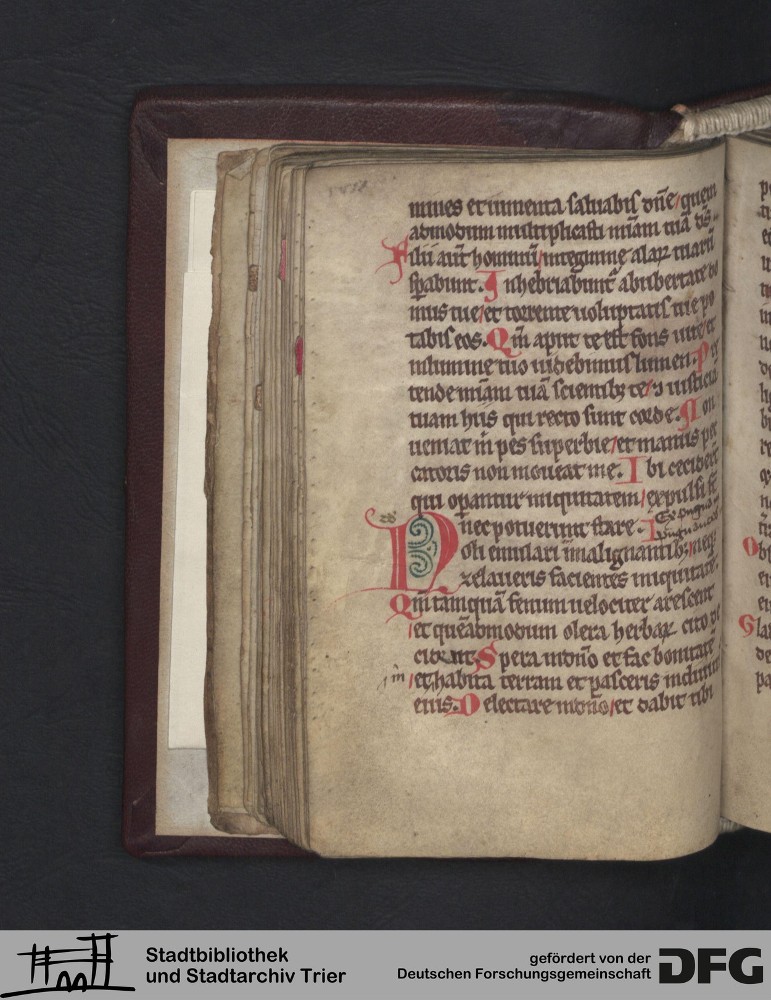 mines et iumenta saluabis dn̄e / quem
admodum multiplicasti mīam tuā ds̄.
Filii aūt hominū / in tegmine alaꝝ tuarū
sꝑabunt. Inebriabunt᷑ ab ubertate do
mus tue / et torrente uoluptatis tue po
tabis eos. Qm̄ aput te est fons uite / et
in lumine tuo uidebimus lumen. Pre
tende mīam tuā scientibꝫ te / ⁊ iusticia
tuam hiis qui recto sunt corde. Non
ueniat m̄ pes superbie / et manus pec
catoris non moueat me. Ibi ceciderūt
qui oꝑantur iniquitatem / expulsi st̄
nec potuerunt stare.
Noli emulari ī malignantibꝫ / neqꝫ
zelaueris facientes iniquitatē.
Qm̄ tamquā fenum uelociter arescent
/ et quēadmodum olera herbaꝝ cito de
cident. Spera in dn̄o et fac bonitatē
/ et habita terram et pasceris in diuitiis
eius. Delectare in dn̄o / et dabit tibi
Stadtbibliothek
und Stadtarchiv Trier
gefördert von der
Deutschen Forschungsgemeinschaft
DFG